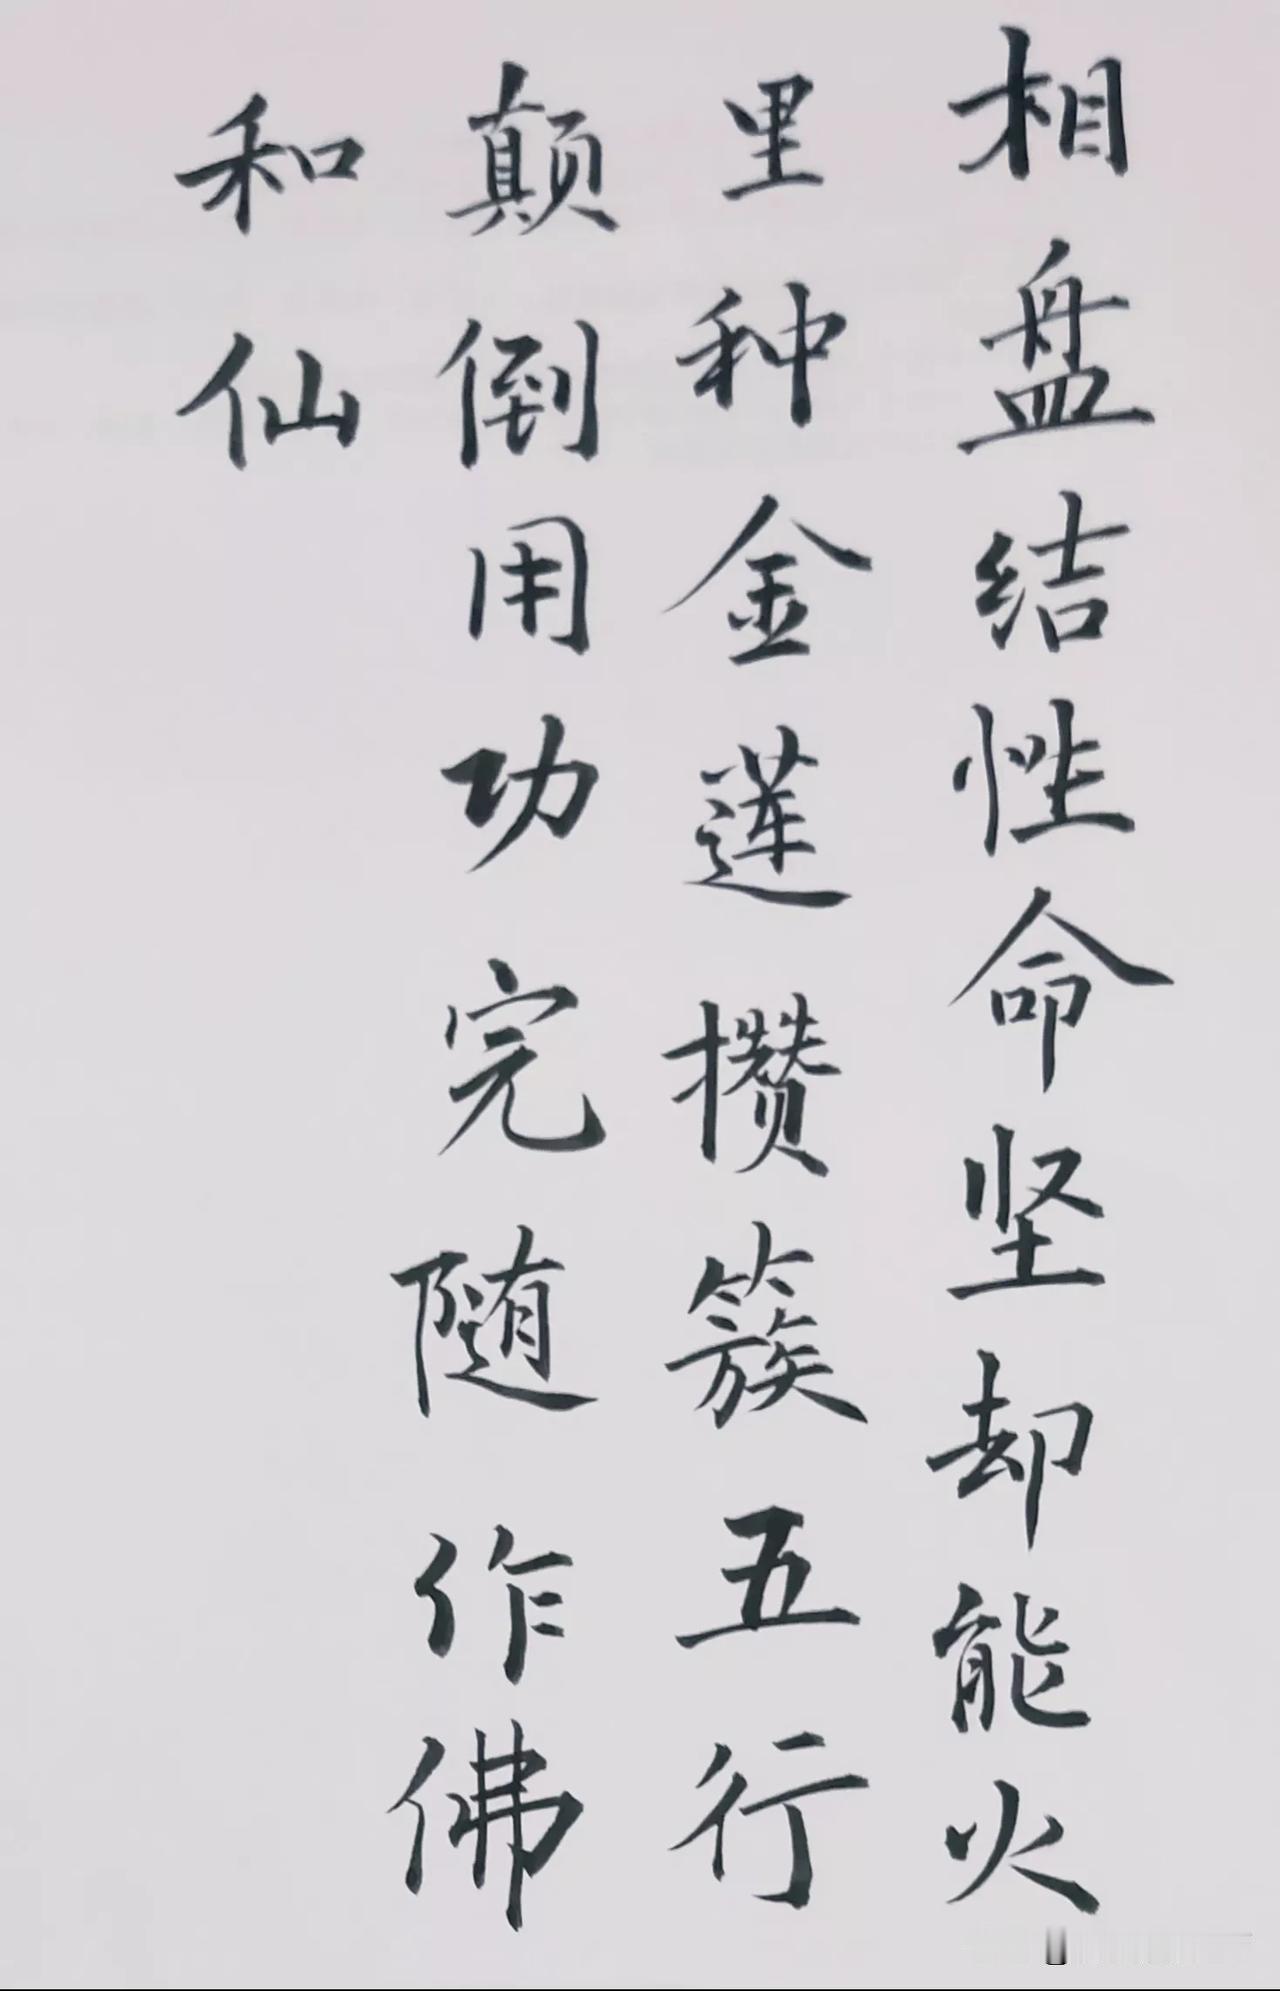 相盘结性命坚却能火
里种金莲攒簇五行
颠倒用功完随作佛
和仙